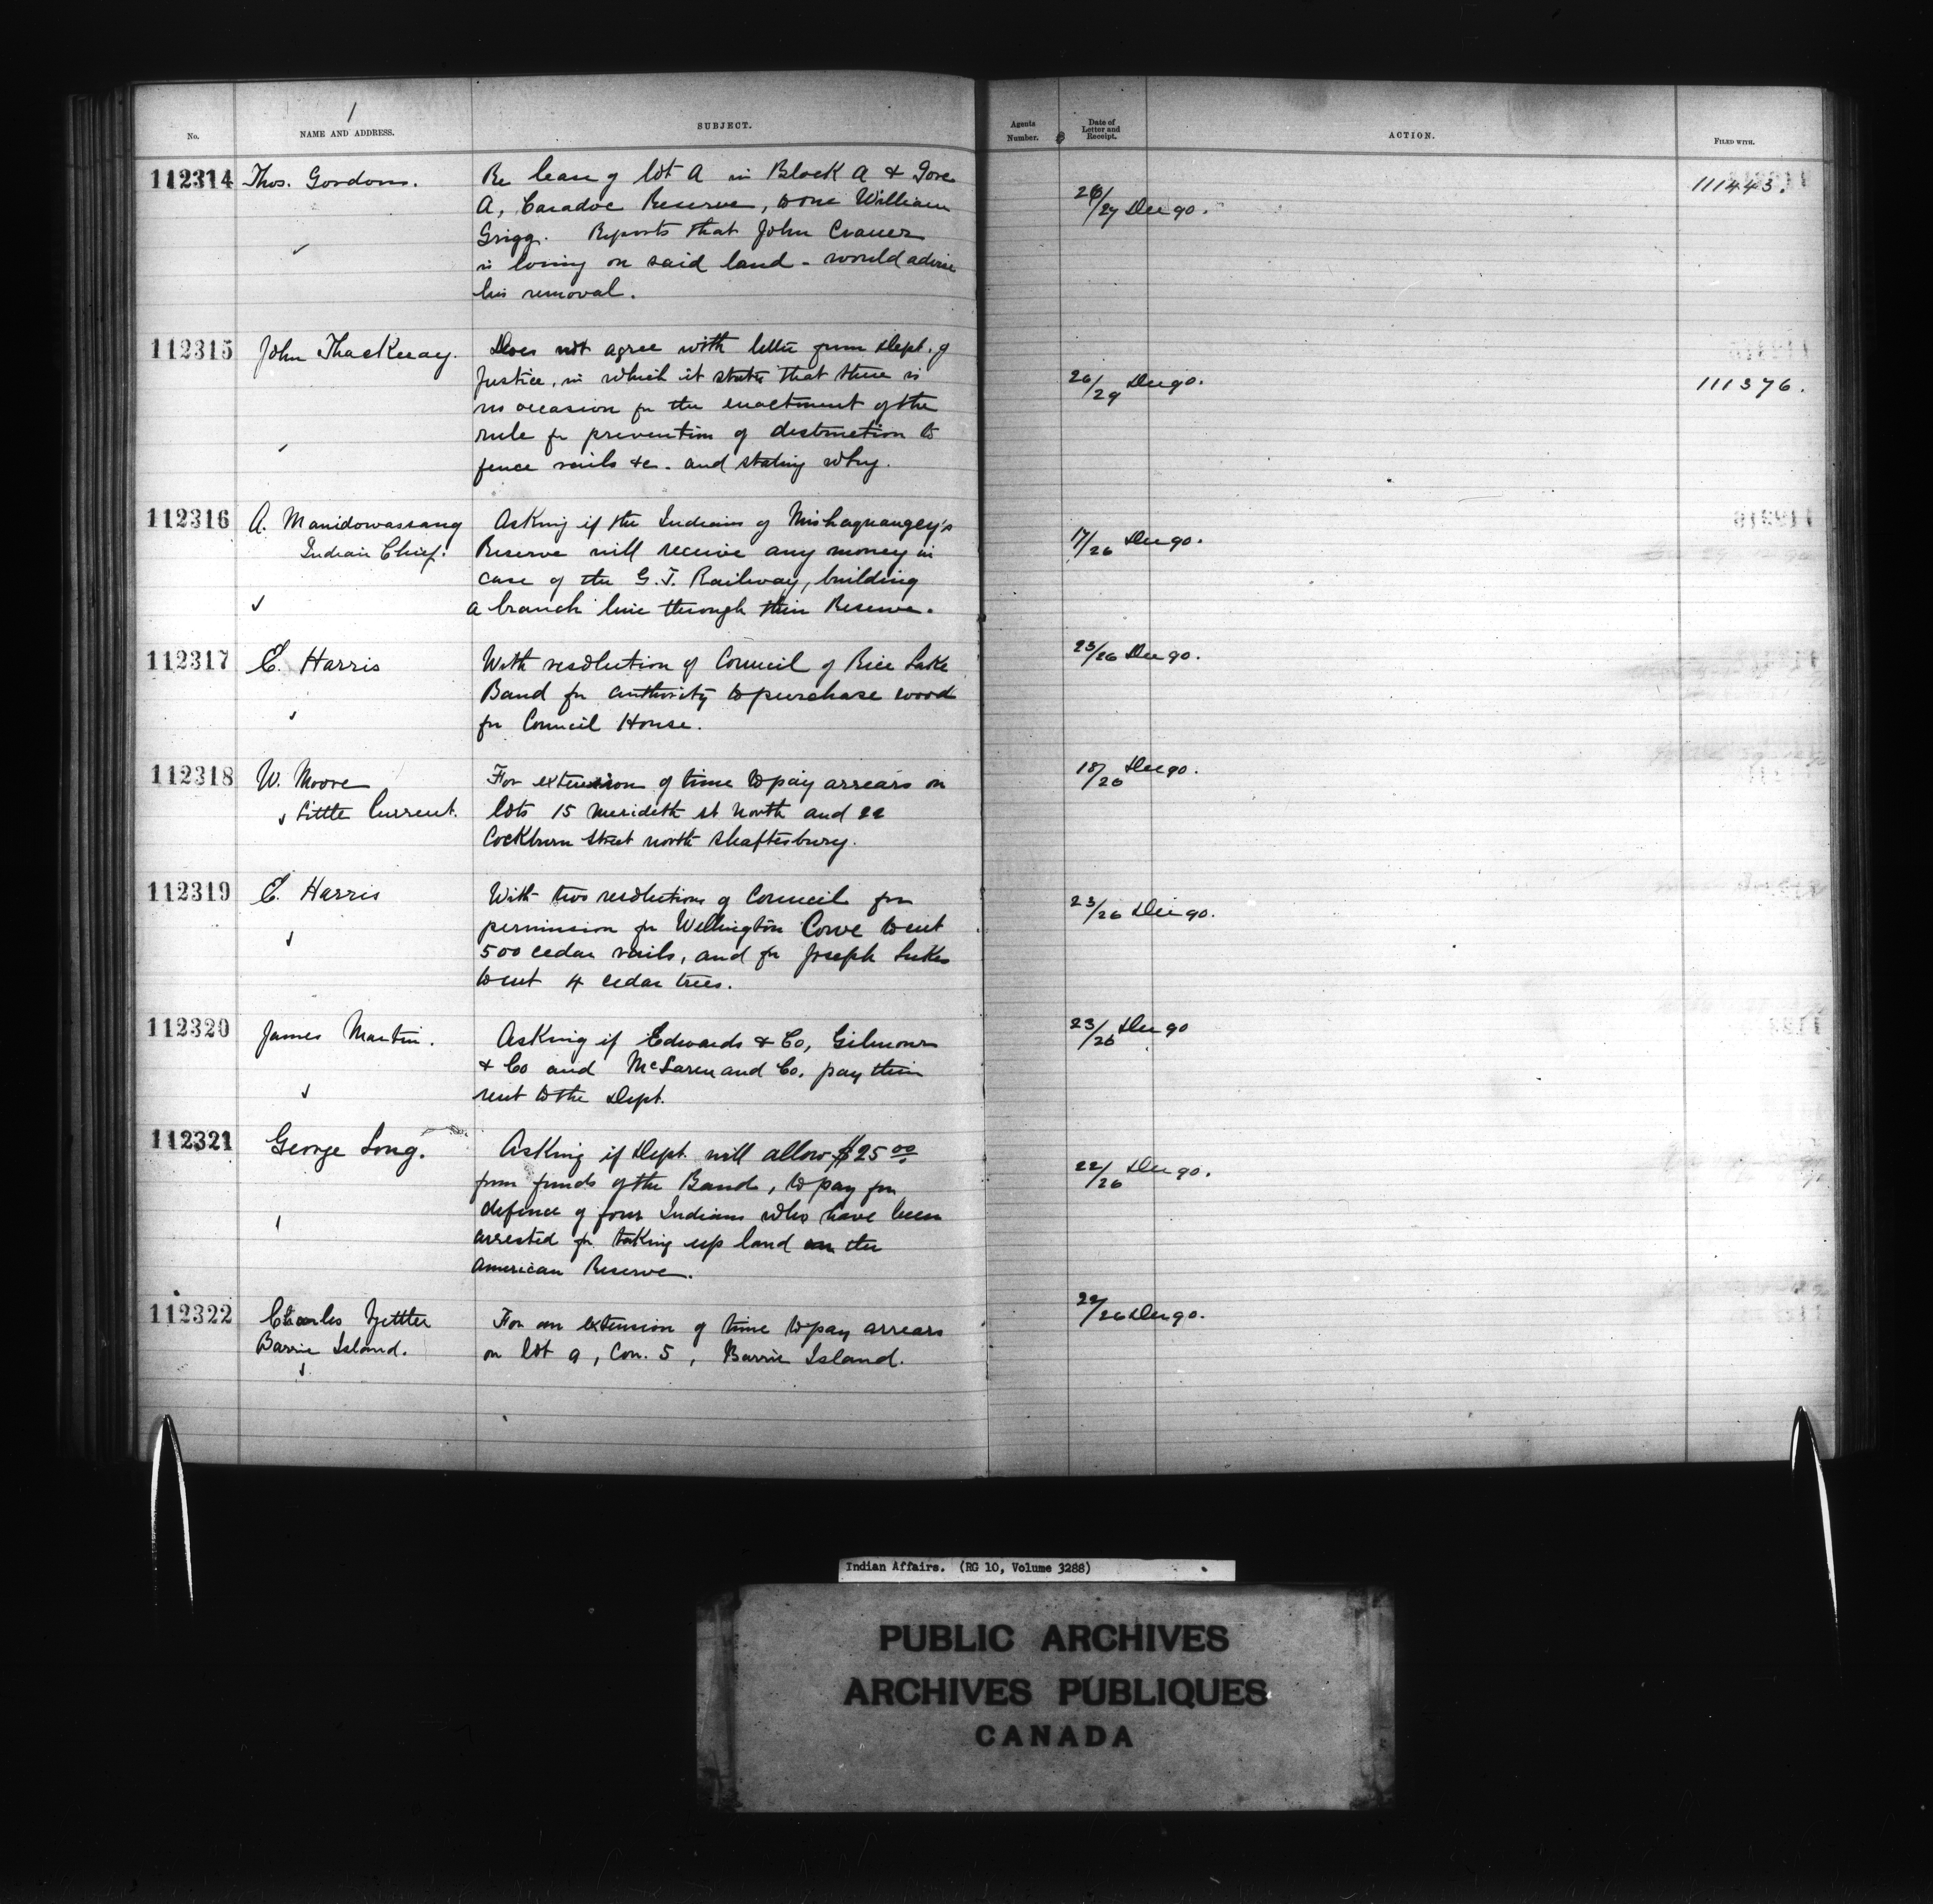 No.
NAME AND ADDRESS.
SUBJECT.
Agents Number.
Date of Letter and Receipt.
ACTION.
FILED WITH.
112314 Thos. Gordon. Re lease of lot A in Block A & Gore
A, Caradoc Reserve, to one William
Grigg. Reports that John
is living on said land - would advise
his removal.
26/27 Dec 90.
111443.
112315 John Thackeray. Does not agree with letter from Dept. of
Justice, in which it states that there is
no occasion for the enactment of the
rule for prevention of destruction to
fence rails &c. and stating why.
26/29 Dec 90.
111376.
112316 A. Manidowassang Asking if the Indians of
Indian Chief. Reserve will receive any money in
case of the G.T. Railway, building
a branch line through their Reserve.
17/26 Dec 90.
112317 C. Harris With resolution of Council of Rice Lake
Band for authority to purchase wood
for Council House.
23/26 Dec 90.
112318 W. Moore For extension of time to pay arrears on
Little Current. lots 15 Merideth st North and 22
Cockburn Street north Shaftesbury.
18/26 Dec 90.
112319 C. Harris With two resolutions of Council for
permission for Wellington Cowe to cut
500 cedar rails, and for Joseph Lukes
to cut 4 cedar trees.
23/26 Dec 90.
112320 James Martin. Asking if Edwards & Co, Gilmour
& Co and McLaren and Co. pay their
rent to the Dept.
23/26 Dec 90
112321 George Long. Asking if Dept. will allow $25 00
from funds of the Band, to pay for
defence of four Indians who have been
arrested for taking up land on the
American Reserve.
22/26 Dec 90.
112322 Charles For an extension of time to pay arrears
Barrie Island. on lot 9, Con. 5, Barrie Island.
22/26 Dec 90.
Indian Affairs. (RG 10, Volume 3288)
PUBLIC ARCHIVES
ARCHIVES PUBLIQUES
CANADA